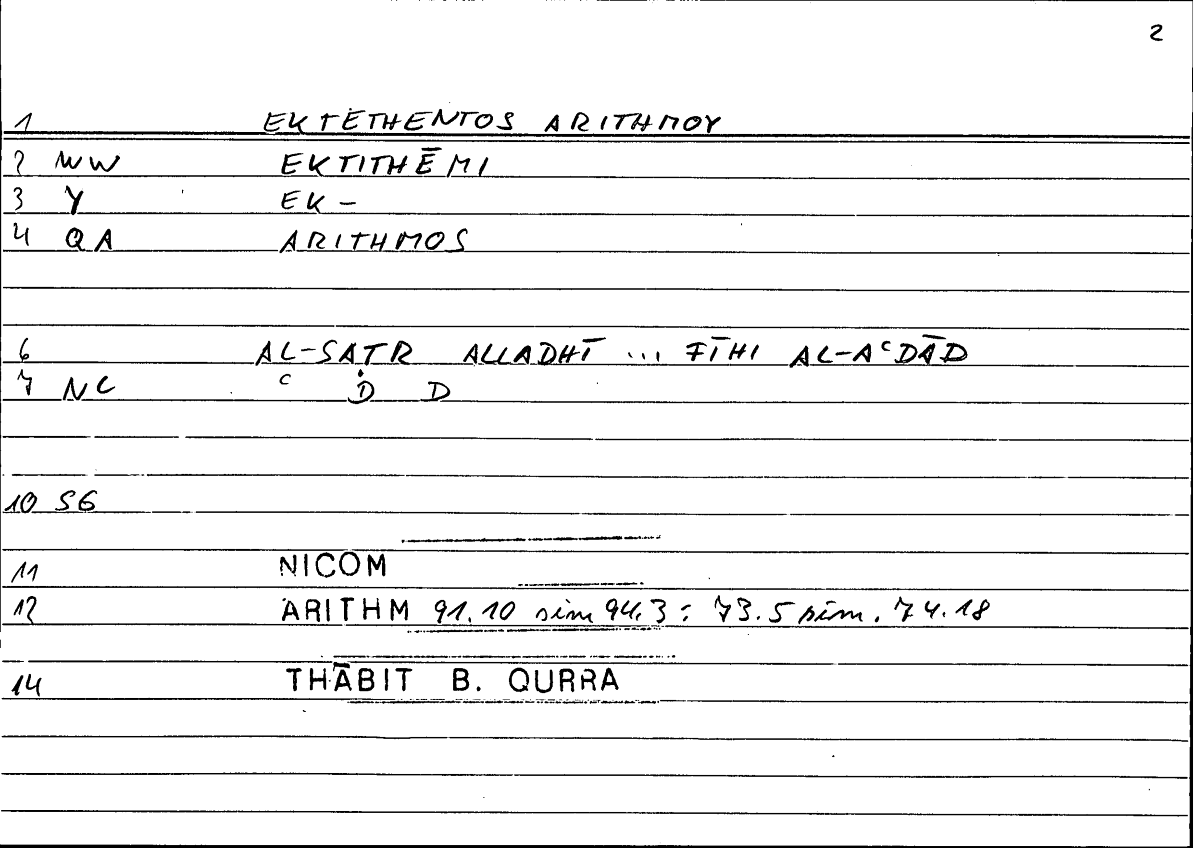 2
1 EKTETHENTOS ARITHMOY
2 WW EKTITHĒMI
3 Y EK-
4 QA ARITHMOS
6 AL-SATR ALLADHĪ ... FĪHI AL-AᶜDĀD
7 NC ᶜ Ḋ D
10 SG
11 NICOM
12 ARITHM 91.10 sim 94.3 : 73.5 sim. 74.18
14 THĀBIT B. QURRA